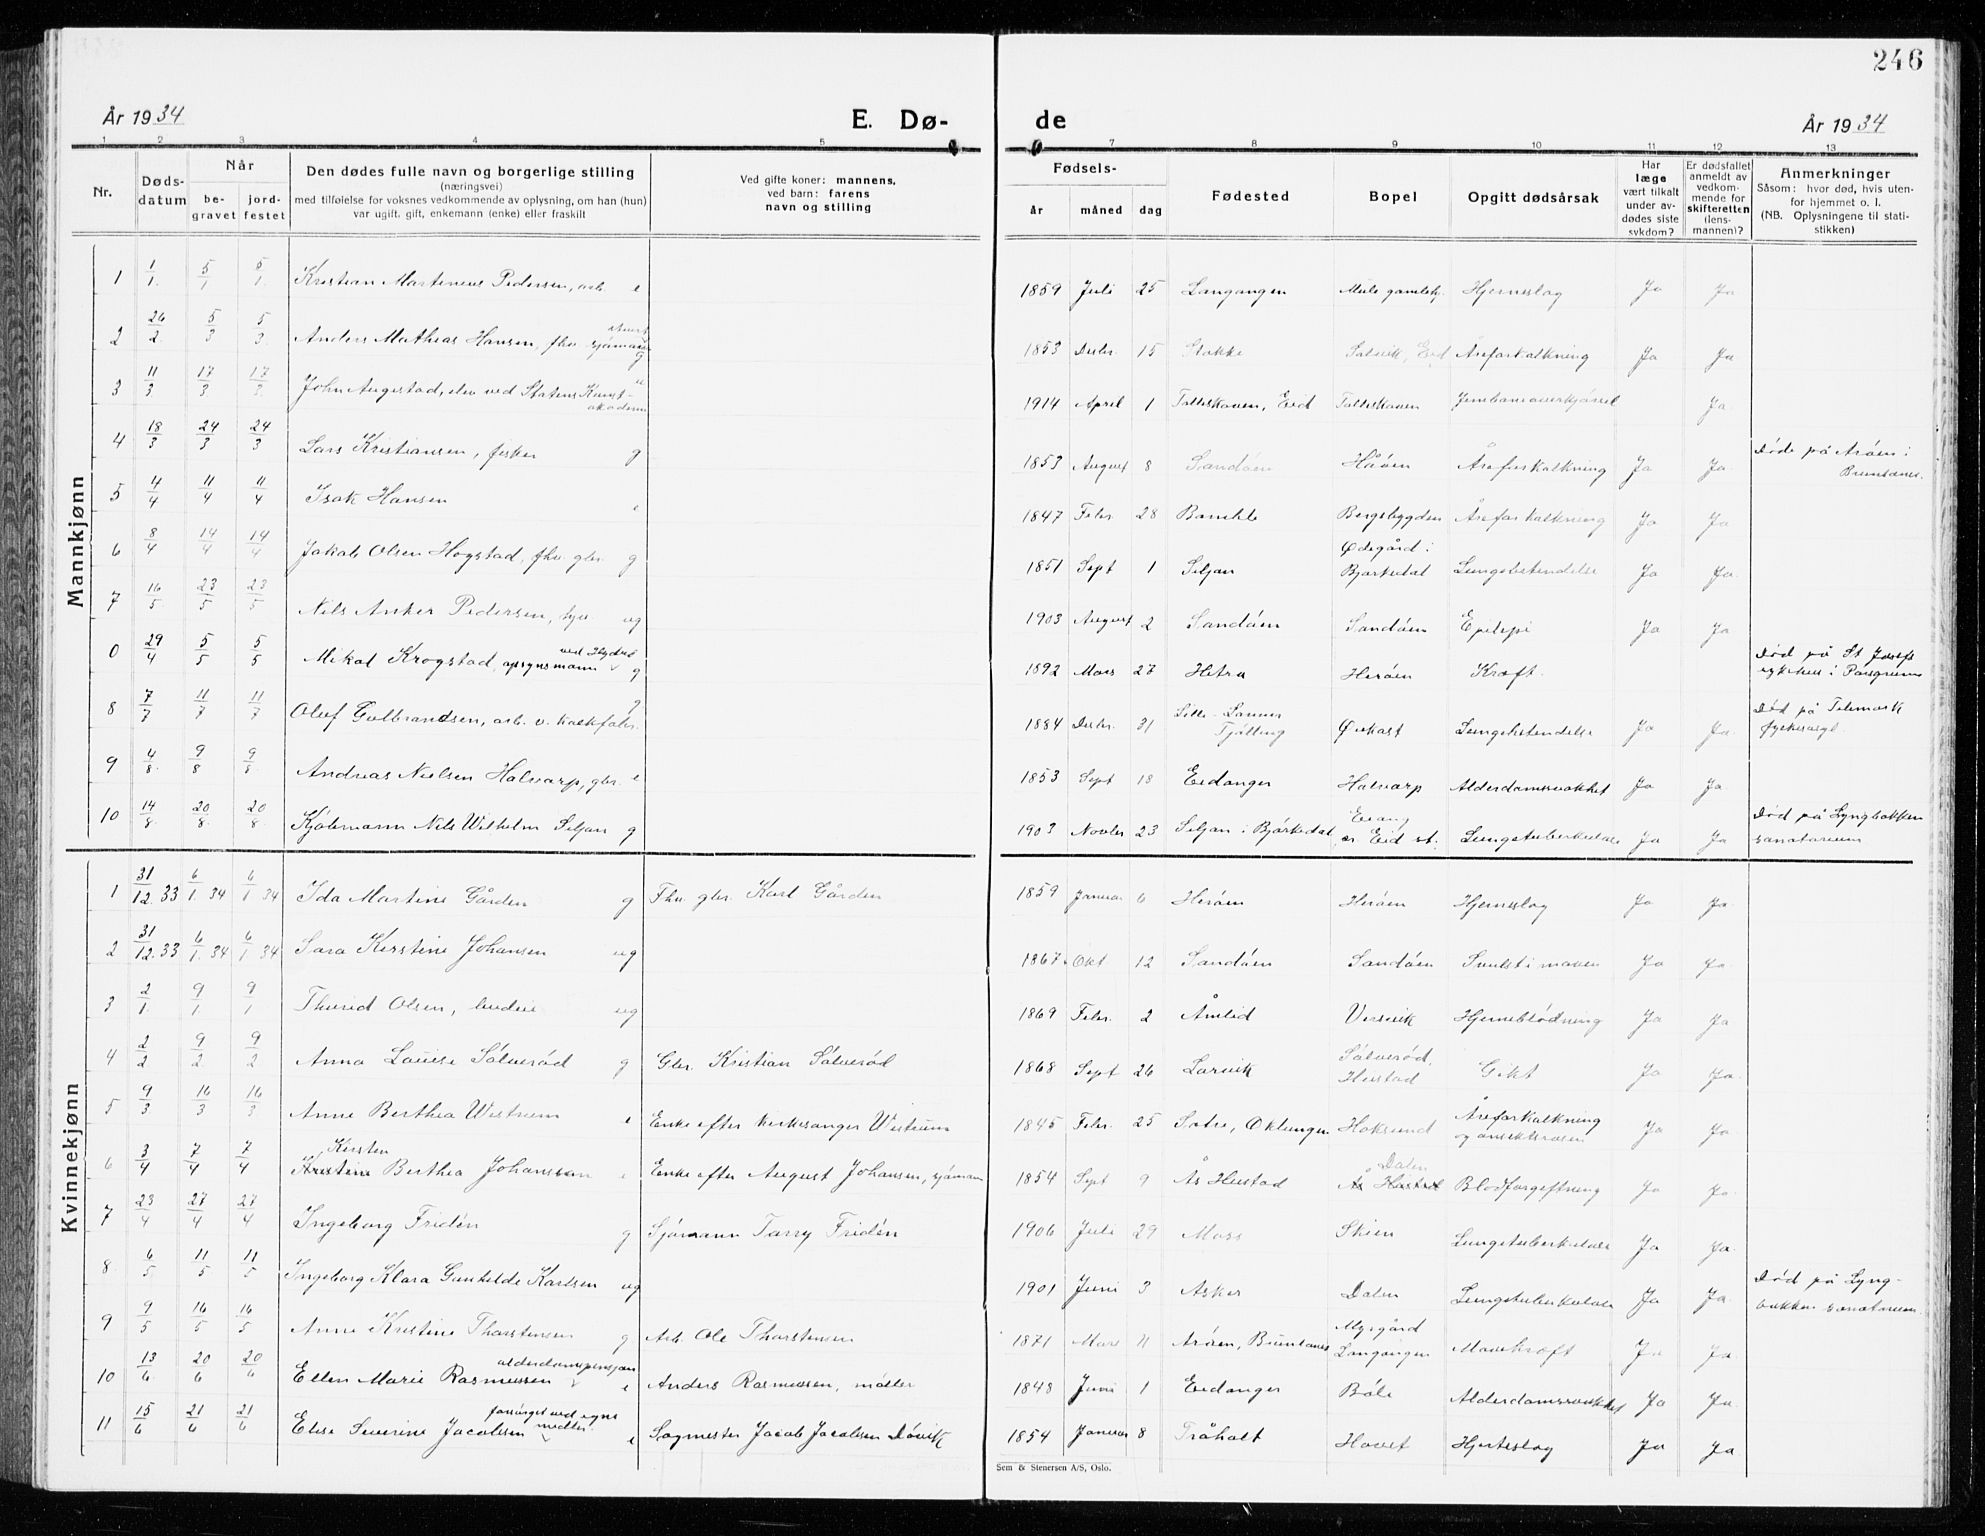 246
År 1934 E. Dø- de År 1934
1 2 3 4 5 7 8 9 10 11 12 13
Nr.
Døds-
datum
Når
be-
gravet
jord-
festet
Den dødes fulle navn og borgerlige stilling
(næringsvei)
med tilføielse for voksnes vedkommende av oplysning, om han (hun)
var ugift, gift, enkemann (enke) eller fraskilt
Ved gifte koner: mannens,
ved barn: farens
navn og stilling
Fødsels-
år måned dag
Fødested
Bopel
Opgitt dødsårsak
Har
læge
vært tilkalt
under av-
dødes siste
sykdom?
Er dødsfallet
anmeldt av
vedkom-
mende for
skifteretten
(lens-
mannen)?
Anmerkninger
Såsom: hvor død, hvis uten-
for hjemmet o. l.
(NB. Oplysningene til stati-
stikken)
Mannkjønn
1 1/1. 5/1 5/1. Kristian Martineus Pedersen, arb. e 1859 Juli 25 Langangen Mule gamlehj. Hjerneslag Ja Ja
2 26/2. 5/3 5/3. Anders Mathias Hansen, fhv. sjømann g 1853 Desbr. 15 Stokke Salvik, Eid Åreforkalkning Ja Ja
3 11/3 17/3 17/3. John Augestad, elev ved Statens Kunst-
akademi 1914 April 1 Talleskoven, Eid Talleskoven Jernbaneoverkjørsel Ja.
4 18/3 24/3 24/3 Lars Kristiansen, fisker g 1853 August 8 Sandøen Håøen Åreforkalkning Ja Ja. Døde på Arøen i
Brunlanes.
5 4/4 11/4 11/4 Isak Hansen e 1847 Febr. 28 Bamble Bergsbygden Åreforkalkning Ja Ja
6 8/4 14/4 14/4 Jakob Olsen Hogstad, fhv. gbr. g 1851 Sept 1 Siljan Ødegård i
Bjørkedal Lungebetendelse Ja Ja.
7 16/5 23/5 23/5 Nils Anker Pedersen, ug 1903 August 2 Sandøen Sandøen Epilepsi Ja Ja
0 29/4 5/5 5/5 Mikal Krogstad, opsynsmann ved Hydro g 1892 Mars 27 Hitra Herøen Kreft. Død på St Josefs
sykehus i Porsgrunn
8 7/7 11/7 11/7 Oluf Gulbrandsen, arb. v. kalkfabr. g 1884 Desbr. 31 Lille-
Tjølling Ørkast Lungebetendelse Ja Ja. Død på Telemark
9 4/8. 9/8 9/8. Andreas Nielsen Halvarp, gbr. e 1853 Sept 18 Eidanger Halvarp Alderdomssvakhet Ja Ja
10 14/8. 20/8. 20/8. Kjøbmann Nils Wilhelm Siljan g 1903 Novbr 23 Siljan i Bjørkedal Eidang
er Eid st. Lungetuberkulose Ja Ja Død på Lyngbakken
sanatorium
Kvinnekjønn
1 31/12.33 6/1.34 6/1 34 Ida Martine Gården g Fhv. gbr. Karl Gården 1859 Januar 6 Herøen Herøen Hjerneslag Ja Ja.
2 31/12.33 6/1.34 6/1 34 Sara Kirstine Johansen ug 1867. Okt. 12 Sandøen Sandøen Svulst i maven Ja Ja.
3 2/1. 9/1. 9/1 Thurid Olsen, budeie ug 1869 Febr. 2 Åmlid Versvik Hjerneblødning Ja Ja
4 2/2 9/2 9/2 Anna Louise Sølverød g Gbr. Kristian Sølverød 1868 Sept 26 Larvik Sølverød,
Heistad Gikt Ja Ja.
5 9/3 16/3 16/3 Anne Berthea Westrum e Enke efter kirkesanger Westrum 1845 Febr. 25 Sotre, Oklungen Hoksund Åreforkalkning
og ansiktsrosen Ja Ja.
6 3/4 7/4 7/4 Kirsten
Kristine Berthea Johanssen e Enke efter August Johansen, sjømann 1854 Sept 9 Ås Heistad Dalen
Ås Heistad Blodforgiftning Ja Ja.
7 23/4 27/4 27/4 Ingeborg Fridén g Sjømann Tarry Fridén 1906 Juli 29 Moss Skien Lungetuberkulose Ja Ja.
8. 6/5 11/5 11/5 Ingeborg Klara Gunhilde Karlsen ug 1901 Juni 3 Asker Dalen Lungetuberkulose Ja Ja. Død på Lyng-
bakken sanatorium.
9 9/5 16/5 16/5 Anne Kristine Thorstensen g Arb. Ole Thorstensen 1871 Mars 11 Arøen, Brunlanes Myrgård
Langangen Mavekreft Ja Ja.
10 13/6 20/6 20/6 Ellen Marie Rasmussen alderdomspensjon e Anders Rasmussen, møller 1848 Juni 1 Eidanger Bøle Alderdomssvakhet Ja Ja.
11 15/6 21/6 21/6 Elise Severine Jacobsen forsørget ved egne
midler. e Sagmester Jacob Jacobsen Døvik 1854 Januar 8 Tråholt Hovet Hjerteslag Ja Ja
Sem & Stenersen A/S, Oslo.